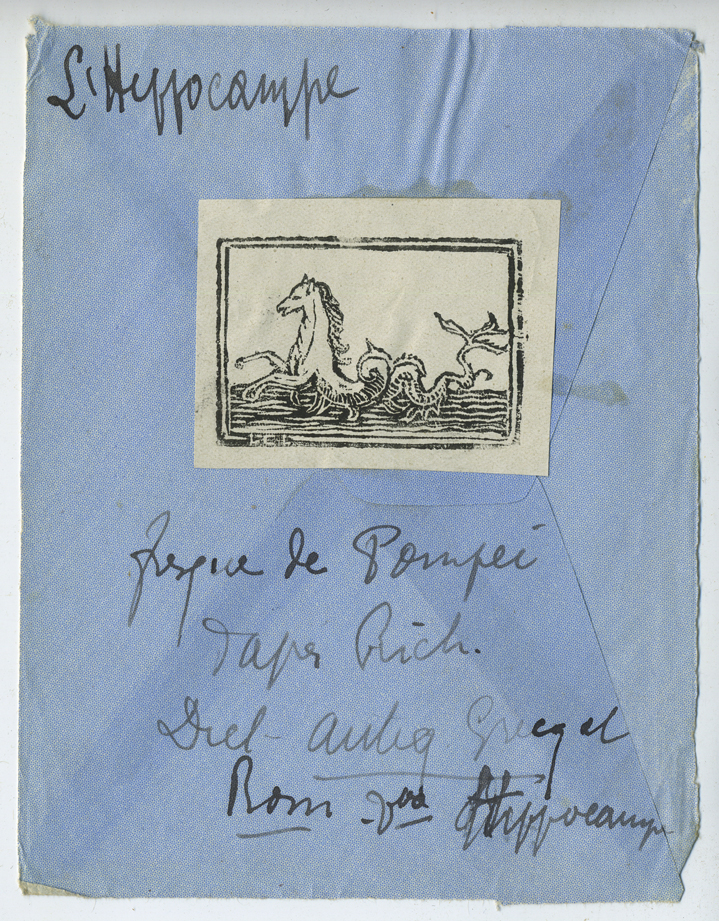 L'Hippocampe
fresque de Pompei
d'après Rich.
Dict. antiq Grecq et
Rom. Vᵒ Hippocampe